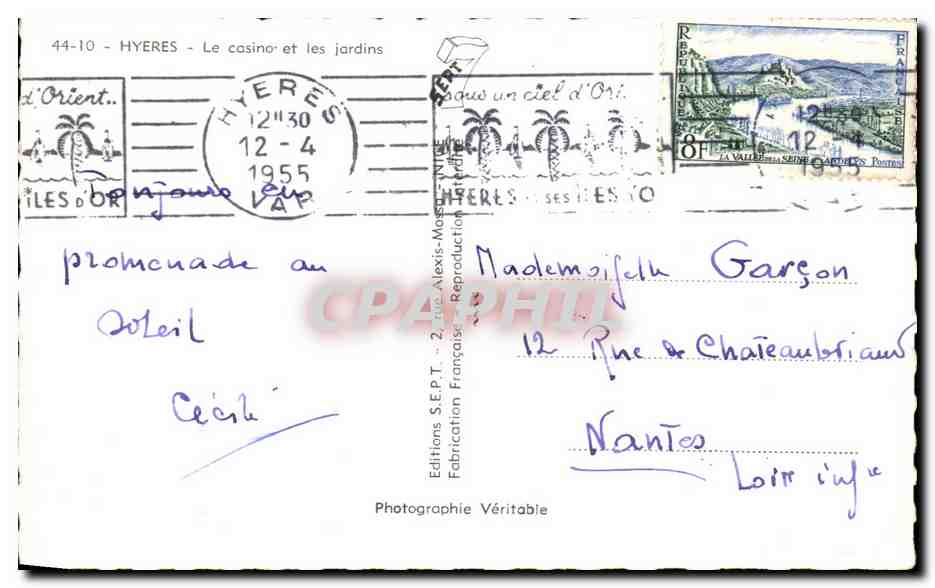 44-10 - HYERES - Le casino et les jardins
SEPT
REPUBLIQUE FRANÇAISE
8F
LA VALLÉE DE LA SEINE AUX ANDELYS POSTES
d'Orient..
ILES D'OR
HYERES
12H30
12-4
1955
VAR
sous un ciel d'Ori
HYERES SES ILES D'O
12-4
1955
Bonjour en
promenade au
soleil
Cécile
Editions S.E.P.T. - 2, rue Alexis-Mossa
Fabrication Française - Reproduction interdite
Mademoiselle Garçon
12 Rue de Chateaubriand
Nantes
Loire infre
Photographie Véritable
CPAPHIL